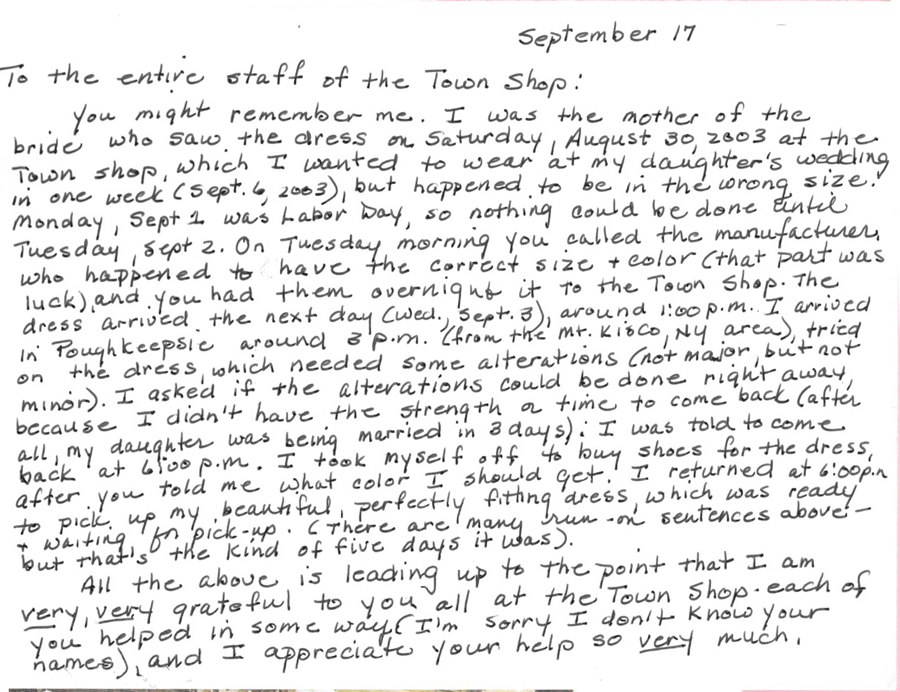 September 17
To the entire staff of the Town Shop:
You might remember me. I was the mother of the
bride who saw the dress on Saturday, August 30, 2003 at the
Town shop, which I wanted to wear at my daughter's wedding
in one week (Sept. 6, 2003), but happened to be in the wrong size.
Monday, Sept 1 was Labor Day, so nothing could be done until
Tuesday, Sept 2. On Tuesday morning you called the manufacturer,
who happened to have the correct size + color (that part was
luck), and you had them overnight it to the Town Shop. The
dress arrived the next day (Wed., Sept. 3), around 1:00 p.m. I arrived
in Poughkeepsie around 3 p.m. (from the Mt. Kisco, NY area), tried
on the dress, which needed some alterations (not major, but not
minor). I asked if the alterations could be done right away,
because I didn't have the strength or time to come back (after
all, my daughter was being married in 3 days). I was told to come
back at 6:00 p.m. I took myself off to buy shoes for the dress,
after you told me what color I should get. I returned at 6:00p.m
to pick up my beautiful, perfectly fitting dress, which was ready
+ waiting for pick-up. (There are many run-on sentences above -
but that's the kind of five days it was).
All the above is leading up to the point that I am
very, very grateful to you all at the Town Shop. each of
you helped in some way (I'm sorry I don't know your
names), and I appreciate your help so very much.